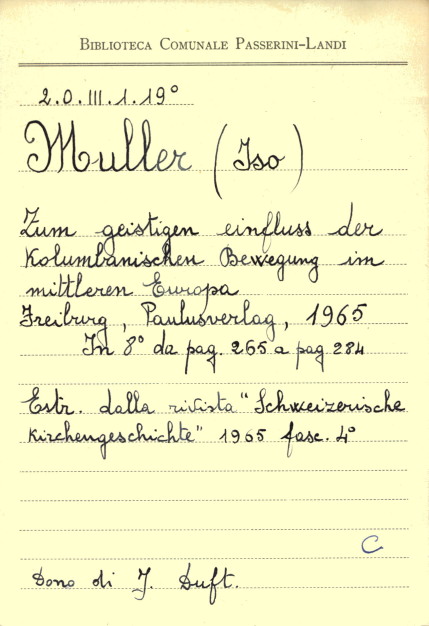 BIBLIOTECA COMUNALE PASSERINI-LANDI
2.0.III.1.19°
Muller (Iso)
Zum geistigen einfluss der
Kolumbanischen Bewegung im
mittleren Europa
Freiburg, Paulusverlag, 1965
In 8° da pag. 265 a pag 284
Estr. dalla rivista "Schweizerische
Kirchengeschichte" 1965 fasc. 4°
C
Dono di J. Duft.